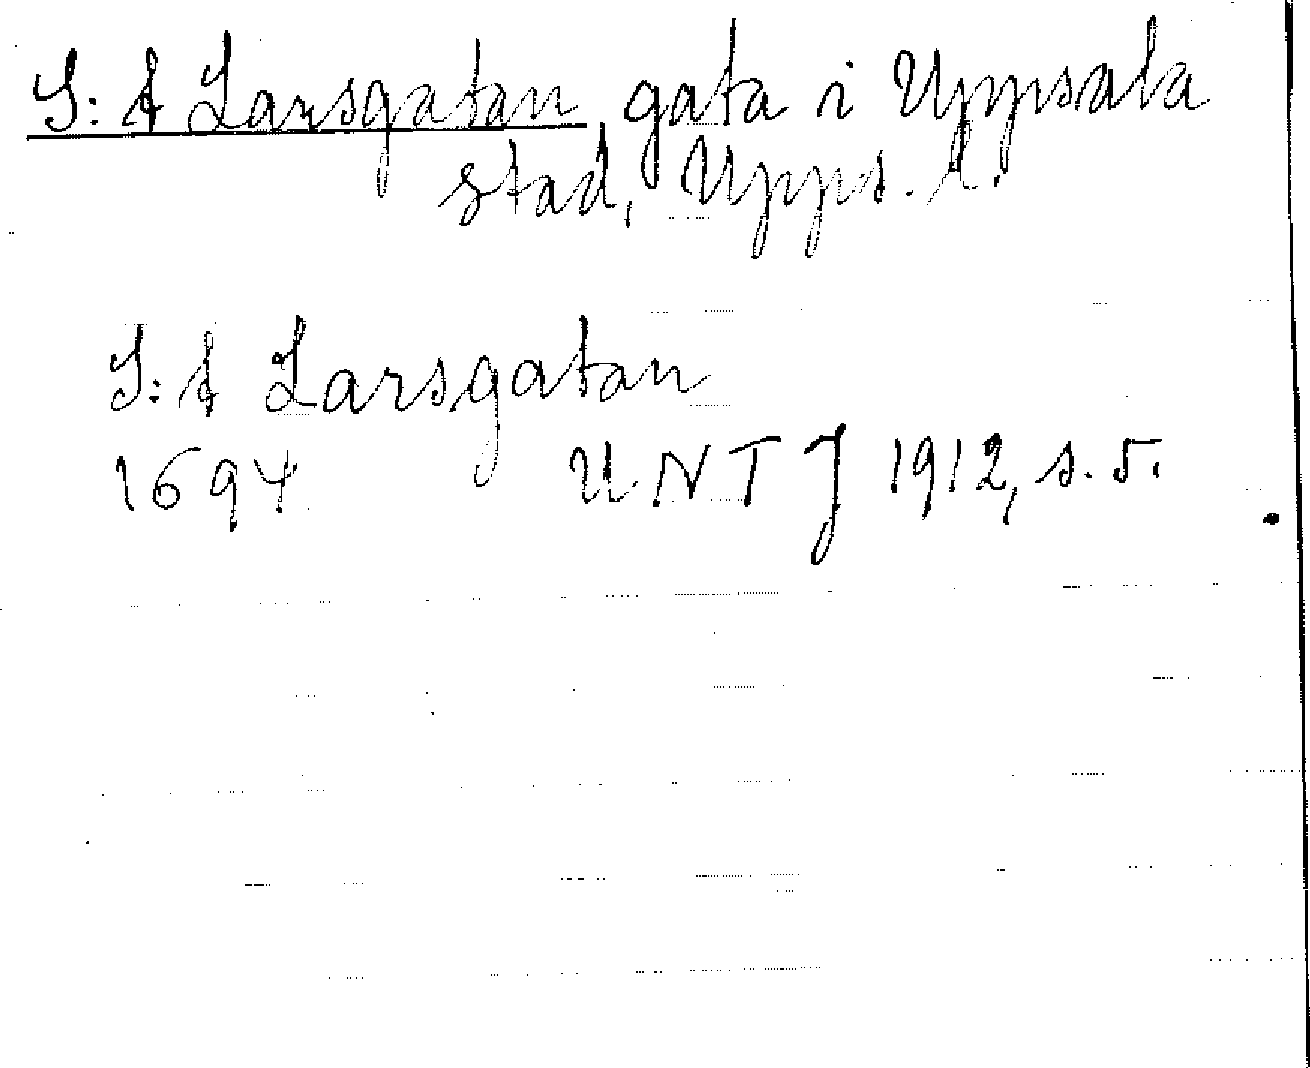 S:t Larsgatan, gata i Uppsala
stad, Upps. l.
S:t Larsgatan
1694 UNTJ 1912, s. 5.